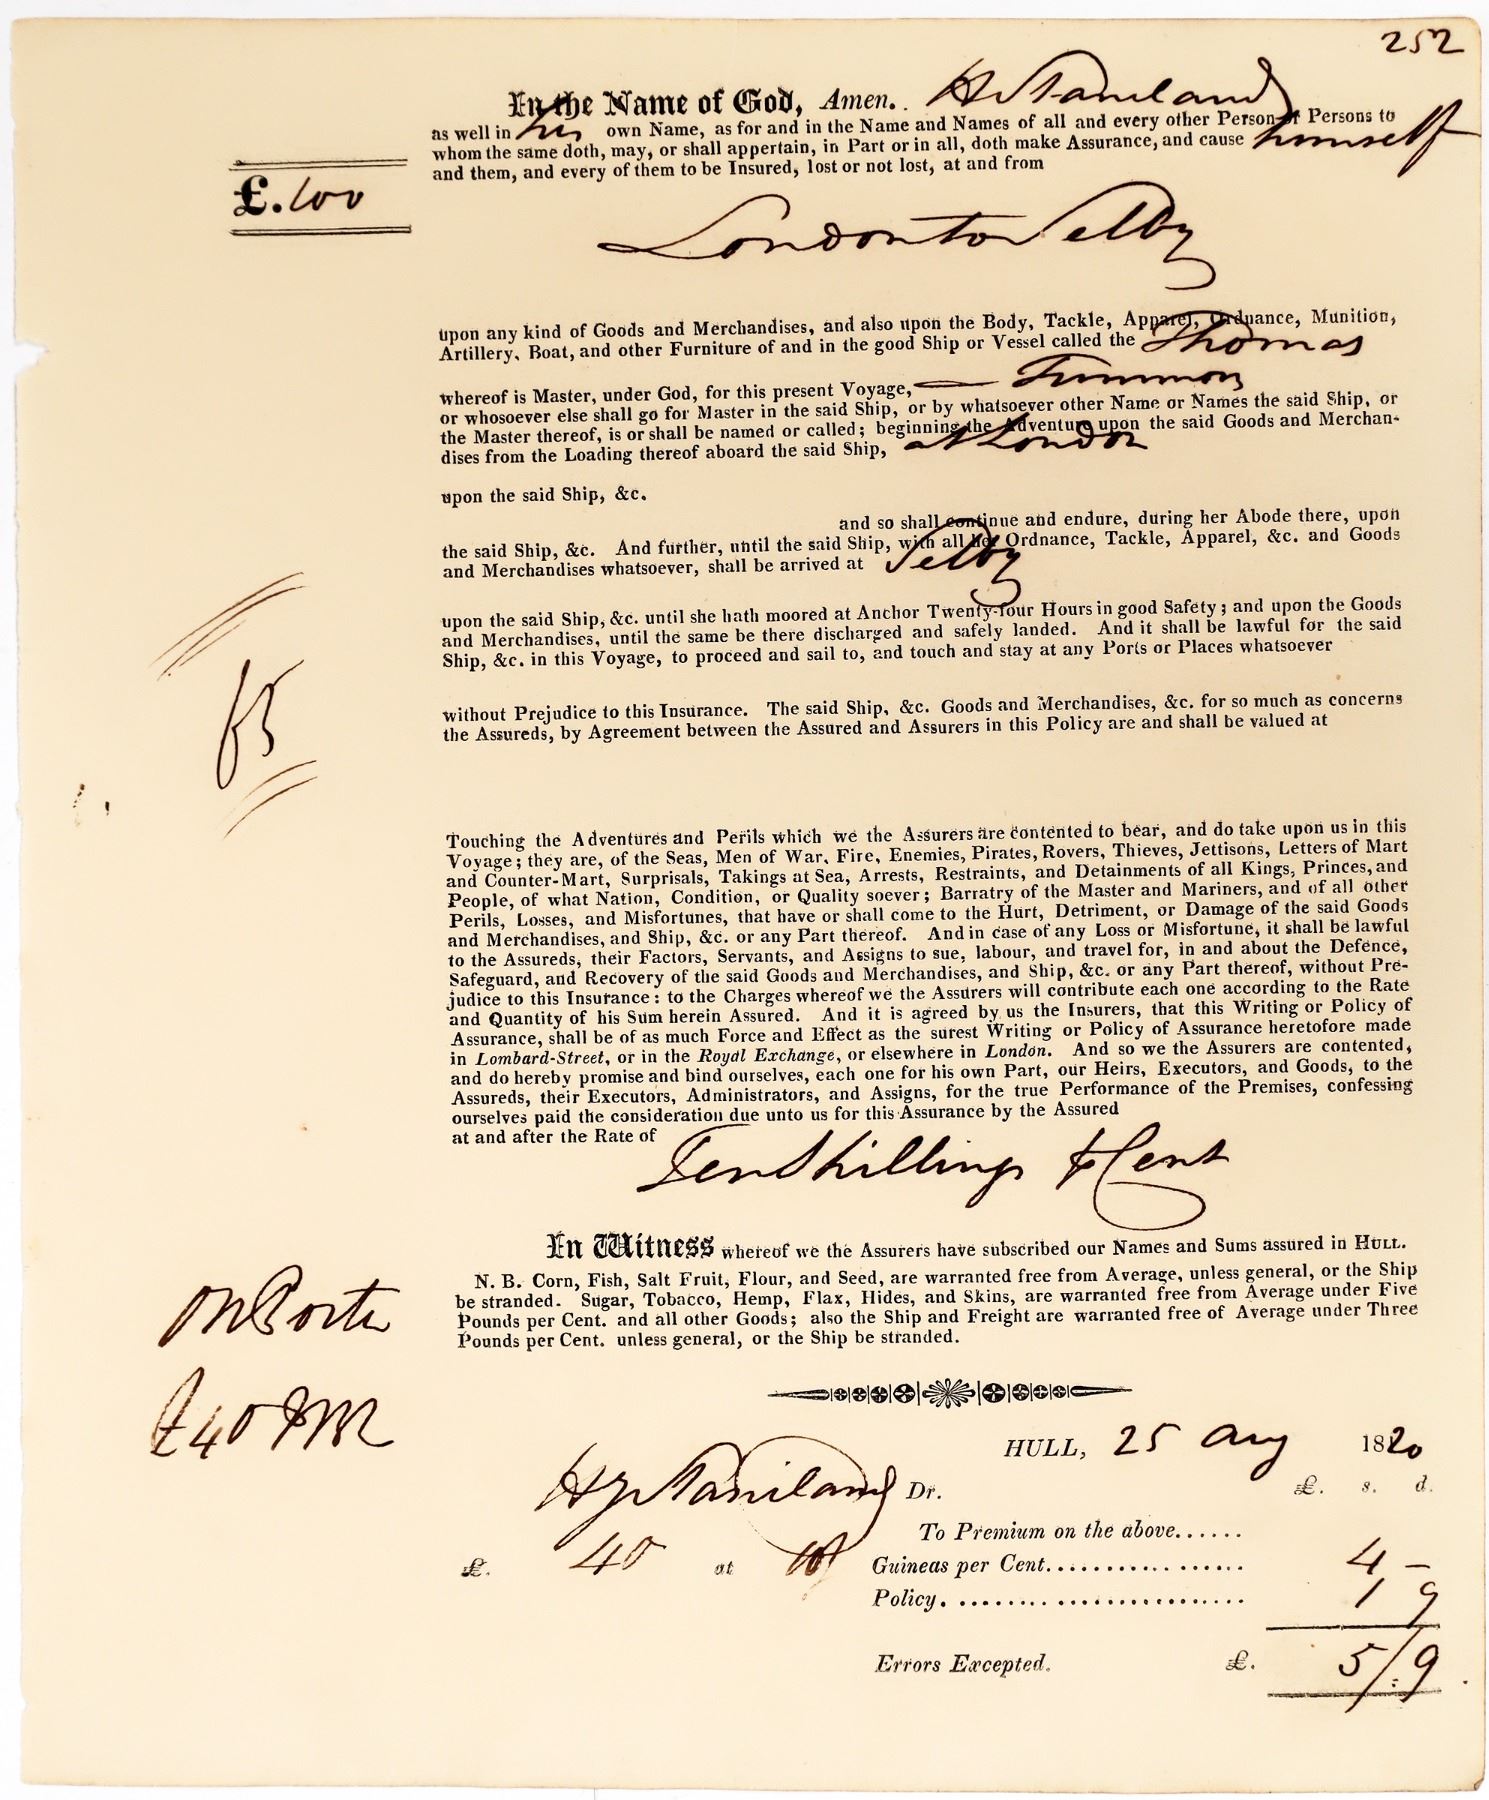 252
In the Name of God, Amen. H Staniland
as well in his own Name, as for and in the Name and Names of all and every other Person or Persons to
whom the same doth, may, or shall appertain, in Part or in all, doth make Assurance, and cause himself
and them, and every of them to be Insured, lost or not lost, at and from
£. 100
London to Selby
upon any kind of Goods and Merchandises, and also upon the Body, Tackle, Apparel, Ordnance, Munition,
Artillery, Boat, and other Furniture of and in the good Ship or Vessel called the Thomas
whereof is Master, under God, for this present Voyage,
or whosoever else shall go for Master in the said Ship, or by whatsoever other Name or Names the said Ship, or
the Master thereof, is or shall be named or called; beginning the Adventure upon the said Goods and Merchan-
dises from the Loading thereof aboard the said Ship, at London
upon the said Ship, &c.
and so shall continue and endure, during her Abode there, upon
the said Ship, &c. And further, until the said Ship, with all her Ordnance, Tackle, Apparel, &c. and Goods
and Merchandises whatsoever, shall be arrived at Selby
upon the said Ship, &c. until she hath moored at Anchor Twenty-four Hours in good Safety; and upon the Goods
and Merchandises, until the same be there discharged and safely landed. And it shall be lawful for the said
Ship, &c. in this Voyage, to proceed and sail to, and touch and stay at any Ports or Places whatsoever
65
without Prejudice to this Insurance. The said Ship, &c. Goods and Merchandises, &c. for so much as concerns
the Assureds, by Agreement between the Assured and Assurers in this Policy are and shall be valued at
Touching the Adventures and Perils which we the Assurers are contented to bear, and do take upon us in this
Voyage; they are, of the Seas, Men of War, Fire, Enemies, Pirates, Rovers, Thieves, Jettisons, Letters of Mart
and Counter-Mart, Surprisals, Takings at Sea, Arrests, Restraints, and Detainments of all Kings, Princes, and
People, of what Nation, Condition, or Quality soever; Barratry of the Master and Mariners, and of all other
Perils, Losses, and Misfortunes, that have or shall come to the Hurt, Detriment, or Damage of the said Goods
and Merchandises, and Ship, &c. or any Part thereof. And in case of any Loss or Misfortune, it shall be lawful
to the Assureds, their Factors, Servants, and Assigns to sue, labour, and travel for, in and about the Defence,
Safeguard, and Recovery of the said Goods and Merchandises, and Ship, &c. or any Part thereof, without Pre-
judice to this Insurance: to the Charges whereof we the Assurers will contribute each one according to the Rate
and Quantity of his Sum herein Assured. And it is agreed by us the Insurers, that this Writing or Policy of
Assurance, shall be of as much Force and Effect as the surest Writing or Policy of Assurance heretofore made
in Lombard-Street, or in the Royal Exchange, or elsewhere in London. And so we the Assurers are contented,
and do hereby promise and bind ourselves, each one for his own Part, our Heirs, Executors, and Goods, to the
Assureds, their Executors, Administrators, and Assigns, for the true Performance of the Premises, confessing
ourselves paid the consideration due unto us for this Assurance by the Assured
at and after the Rate of Ten Shillings P Cent
In Witness whereof we the Assurers have subscribed our Names and Sums assured in HULL.
N. B. Corn, Fish, Salt Fruit, Flour, and Seed, are warranted free from Average, unless general, or the Ship
be stranded. Sugar, Tobacco, Hemp, Flax, Hides, and Skins, are warranted free from Average under Five
Pounds per Cent. and all other Goods; also the Ship and Freight are warranted free of Average under Three
Pounds per Cent. unless general, or the Ship be stranded.
On Porter
£40
HULL, 25 Aug 1820
Hy Staniland Dr. £. s. d.
To Premium on the above......
£. 40 at 10/ Guineas per Cent. 4 –
Policy. 1 9
Errors Excepted. £. 5/.9